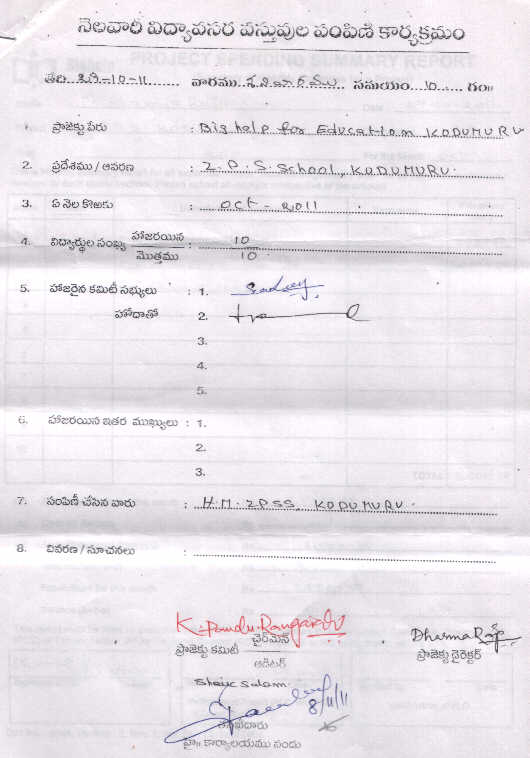 నెలవారీ విద్యావసర వస్తువుల పంపిణి కార్యక్రమం
తేది 29-10-11 వారము శనివారము సమయం 10 గం॥
1. ప్రాజెక్టు పేరు : Big help for Education KODUMURU
2. ప్రదేశము / ఆవరణ : Z.P.S. School, KODUMURU.
3. ఏ నెల కొఱకు : OCT - 2011
4. విద్యార్థుల సంఖ్య హాజరయిన / మొత్తము : 10 / 10
5. హాజరైన కమిటీ సభ్యులు : 1.
హోదాతో 2.
3.
4.
5.
6. హాజరయిన ఇతర ముఖ్యులు : 1.
2.
3.
7. పంపిణీ చేసిన వారు : H.M. ZPSS, KODUMURU.
8. వివరణ / సూచనలు :
K. Pandu Rangarao
ప్రాజెక్టు కమిటీ ఛైర్మెన్ / ఆడిటర్
Dharma Rao
ప్రాజెక్టు డైరెక్టర్
Shaik Salam
8/11/11
తనిఖీదారు
హై॥ కార్యాలయము నందు